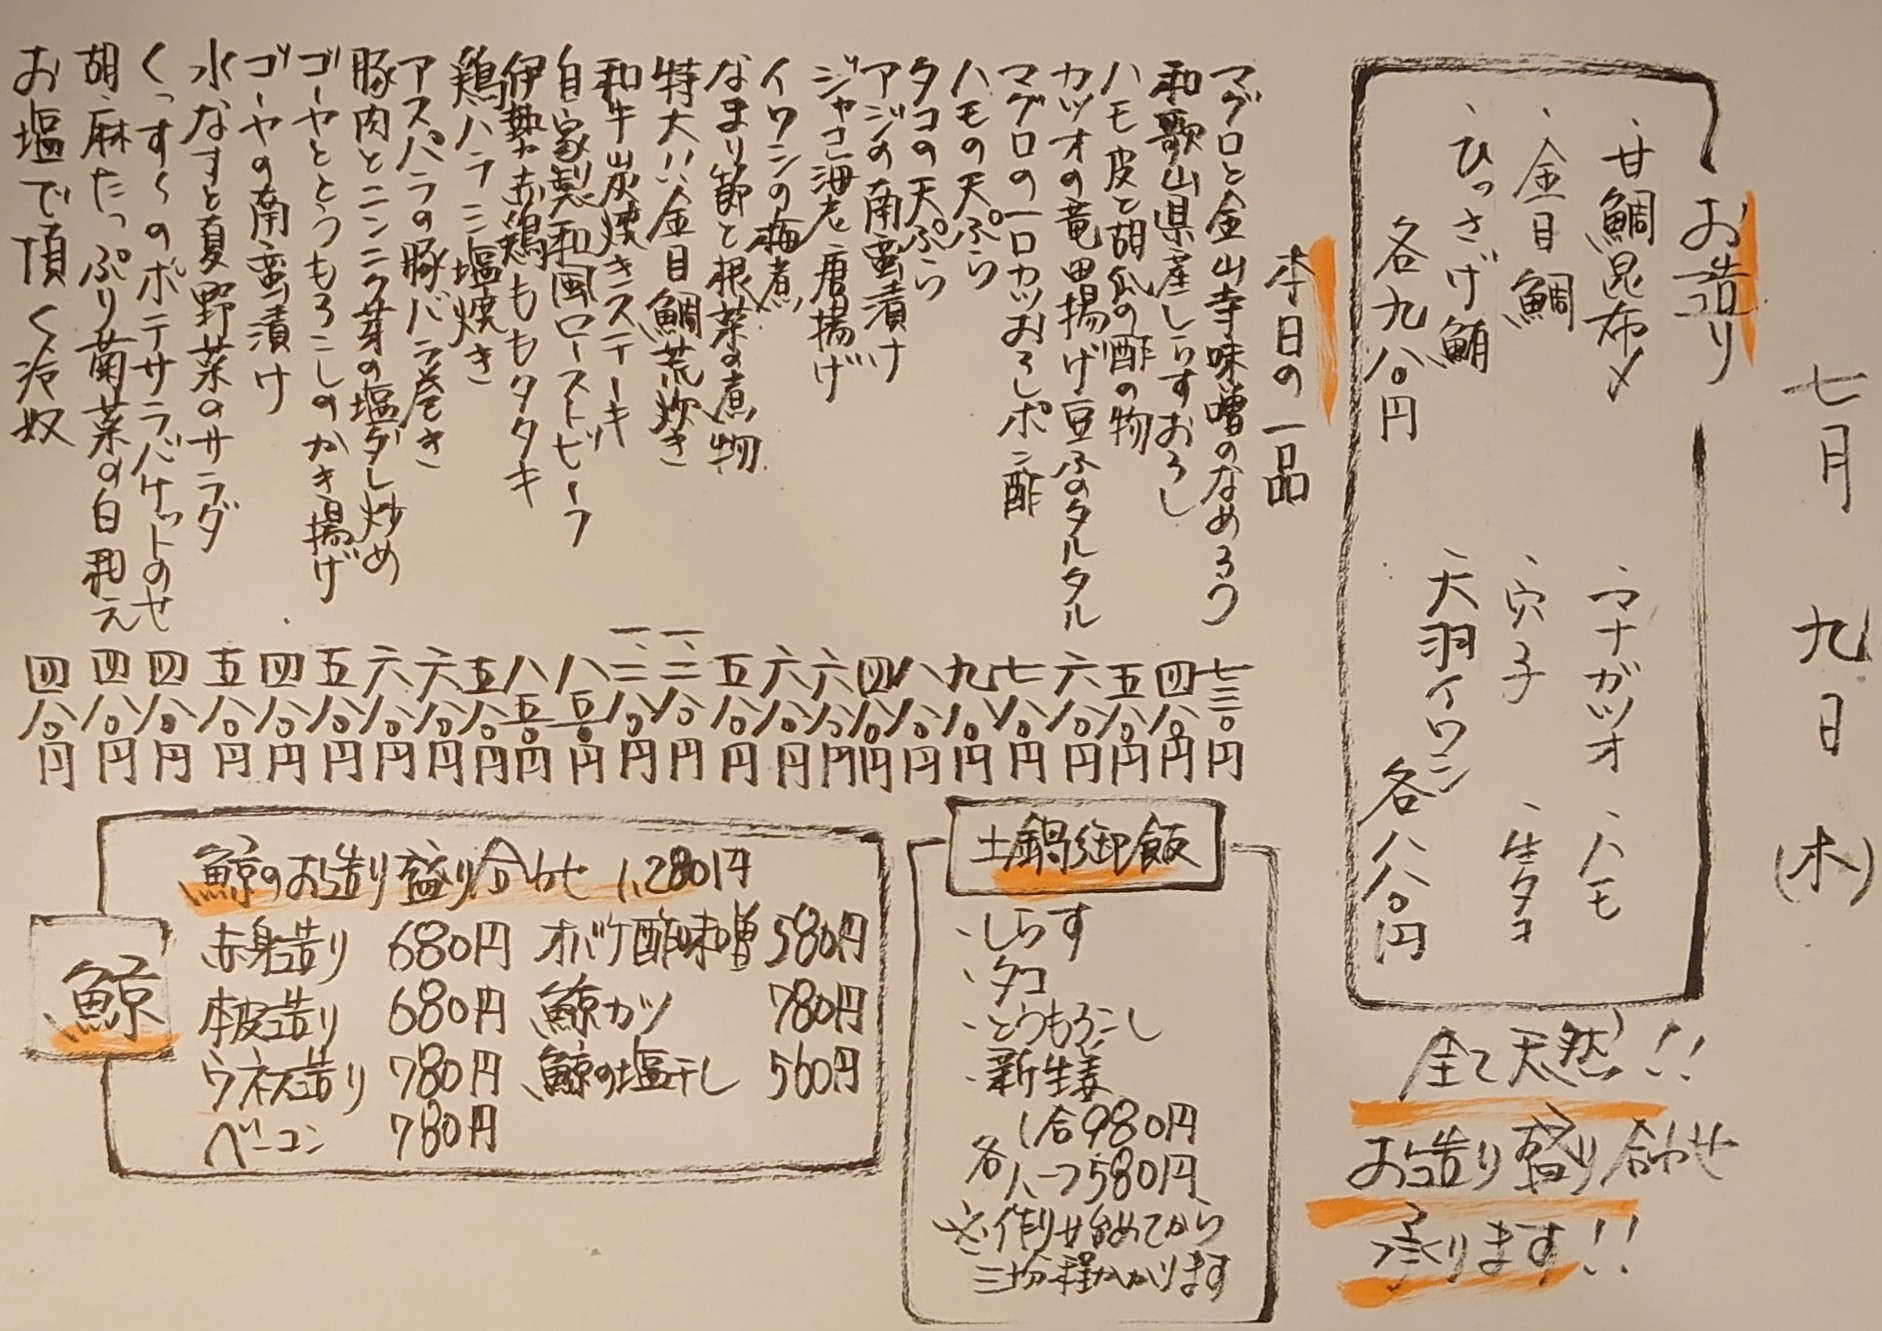 七月 九日 (木)
お造り
・甘鯛昆布〆
・金目鯛
・ひっさげ鮪
各九八〇円
・マナガツオ
・ハモ
・穴子
・生タコ
・天羽イワシ
各八八〇円
全て天然!!
お造り盛り合わせ
承ります!!
本日の一品
マグロと金山寺味噌のなめろう 七三〇円
和歌山県産しらすおろし 四八〇円
ハモ皮と胡瓜の酢の物 五八〇円
カツオの竜田揚げ豆ふのタルタル 六八〇円
マグロの一口カツおろしポン酢 七八〇円
ハモの天ぷら 九八〇円
タコの天ぷら 八八〇円
アジの南蛮漬け 四八〇円
ジャコ海老唐揚げ 六八〇円
イワシの梅煮 六八〇円
なまり節と根菜の煮物 五八〇円
特大!!金目鯛荒炊き 一、二八〇円
和牛炭焼きステーキ 一、二八〇円
自家製和風ローストビーフ 八五〇円
伊勢赤鶏ももタタキ 八五〇円
鶏ハラミ塩焼き 五八〇円
アスパラの豚バラ巻き 六八〇円
豚肉とニンニク芽の塩ダレ炒め 六八〇円
ゴーヤととうもろこしのかき揚げ 五八〇円
ゴーヤの南蛮漬け 四八〇円
水なすと夏野菜のサラダ 五八〇円
くっすくのポテサラバケットのせ 四八〇円
胡麻たっぷり菊菜の白和え 四八〇円
お塩で頂く冷奴 四八〇円
土鍋御飯
・しらす
・タコ
・とうもろこし
・新生姜
各 1合980円
ハーフ580円
※作り始めてから
三十分程かかります
鯨
鯨のお造り盛り合わせ 1,280円
赤身造り 680円 オバケ酢味噌 580円
本皮造り 680円 鯨カツ 780円
ウネス造り 780円 鯨の塩干し 560円
ベーコン 780円